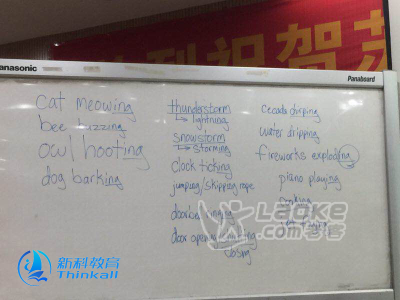 Panasonic
Panaboard
利祝贺
cat meowing
bee bizzing
owl hooting
dog barking
thunderstorm
lightning
snowstorm
storming
clock ticking
jumping/skipping rope
doorbell ringing
door opening
closing
water dripping
fireworks exploding
piano playing
Laoke
.com老客
新科教育
Thinkall